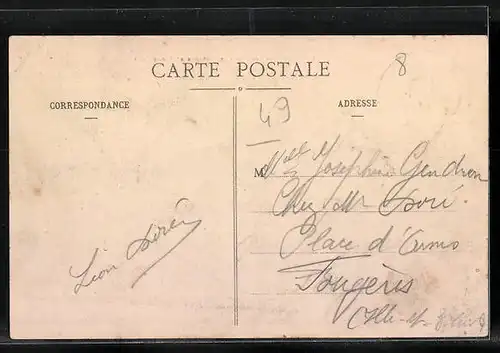 CARTE POSTALE
CORRESPONDANCE
ADRESSE
8
49
Mlle Joséphine Gendron
Chez Mr Doré.
Place d'Armes
Fougères
(Ille-et-Vilaine)
Léon